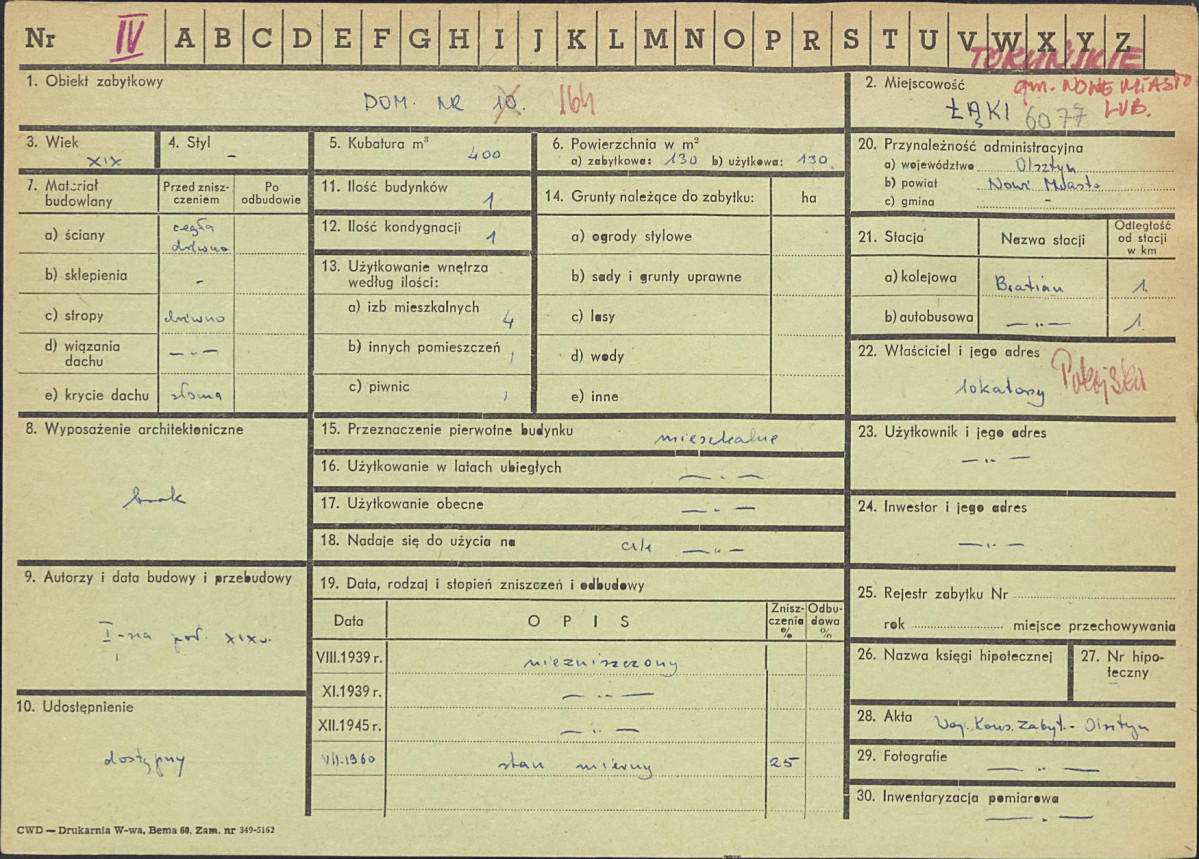 Nr IV A B C D E F G H I J K L M N O P R S T U V W X Y Z
TORUŃSKIE
1. Obiekt zabytkowy
DOM. NR 10. 16h
2. Miejscowość
gm. NOWE MIASTO
LUB.
ŁĄKI 6077
3. Wiek
XIX
4. Styl
-
5. Kubatura m³
400
6. Powierzchnia w m²
a) zabytkowa: 130 b) użytkowa: 130
7. Materiał budowlany
Przed zniszczeniem
Po odbudowie
a) ściany cegła drewno
b) sklepienia -
c) stropy drewno
d) wiązania dachu — „ —
e) krycie dachu słoma
8. Wyposażenie architektoniczne
brak
9. Autorzy i data budowy i przebudowy
I-sza poł. XIX w.
10. Udostępnienie
dostępny
11. Ilość budynków
1
12. Ilość kondygnacji
1
13. Użytkowanie wnętrza
według ilości:
a) izb mieszkalnych 4
b) innych pomieszczeń 1
c) piwnic 1
14. Grunty należące do zabytku: ha
a) ogrody stylowe
b) sady i grunty uprawne
c) lasy
d) wody
e) inne
15. Przeznaczenie pierwotne budynku mieszkalne
16. Użytkowanie w latach ubiegłych — „ —
17. Użytkowanie obecne — „ —
18. Nadaje się do użycia na cele — „ —
19. Data, rodzaj i stopień zniszczeń i odbudowy
Data OPIS Zniszczenia % Odbudowa %
VIII.1939 r. niezniszczony
XI.1939 r. — „ —
XII.1945 r. — „ —
VII.1960 stan mierny 25
20. Przynależność administracyjna
a) województwo Olsztyn
b) powiat Nowe Miasto
c) gmina -
21. Stacja Nazwa stacji Odległość od stacji w km
a) kolejowa Bratian 1.
b) autobusowa — „ — 1.
22. Właściciel i jego adres
lokatorzy
23. Użytkownik i jego adres
— „ —
24. Inwestor i jego adres
— „ —
25. Rejestr zabytku Nr
rok miejsce przechowywania
26. Nazwa księgi hipotecznej
27. Nr hipoteczny
28. Akta Woj. Kons. Zabyt. - Olsztyn
29. Fotografie — „ —
30. Inwentaryzacja pomiarowa
— „ —
CWD — Drukarnia W-wa, Bema 60. Zam. nr 349-5162